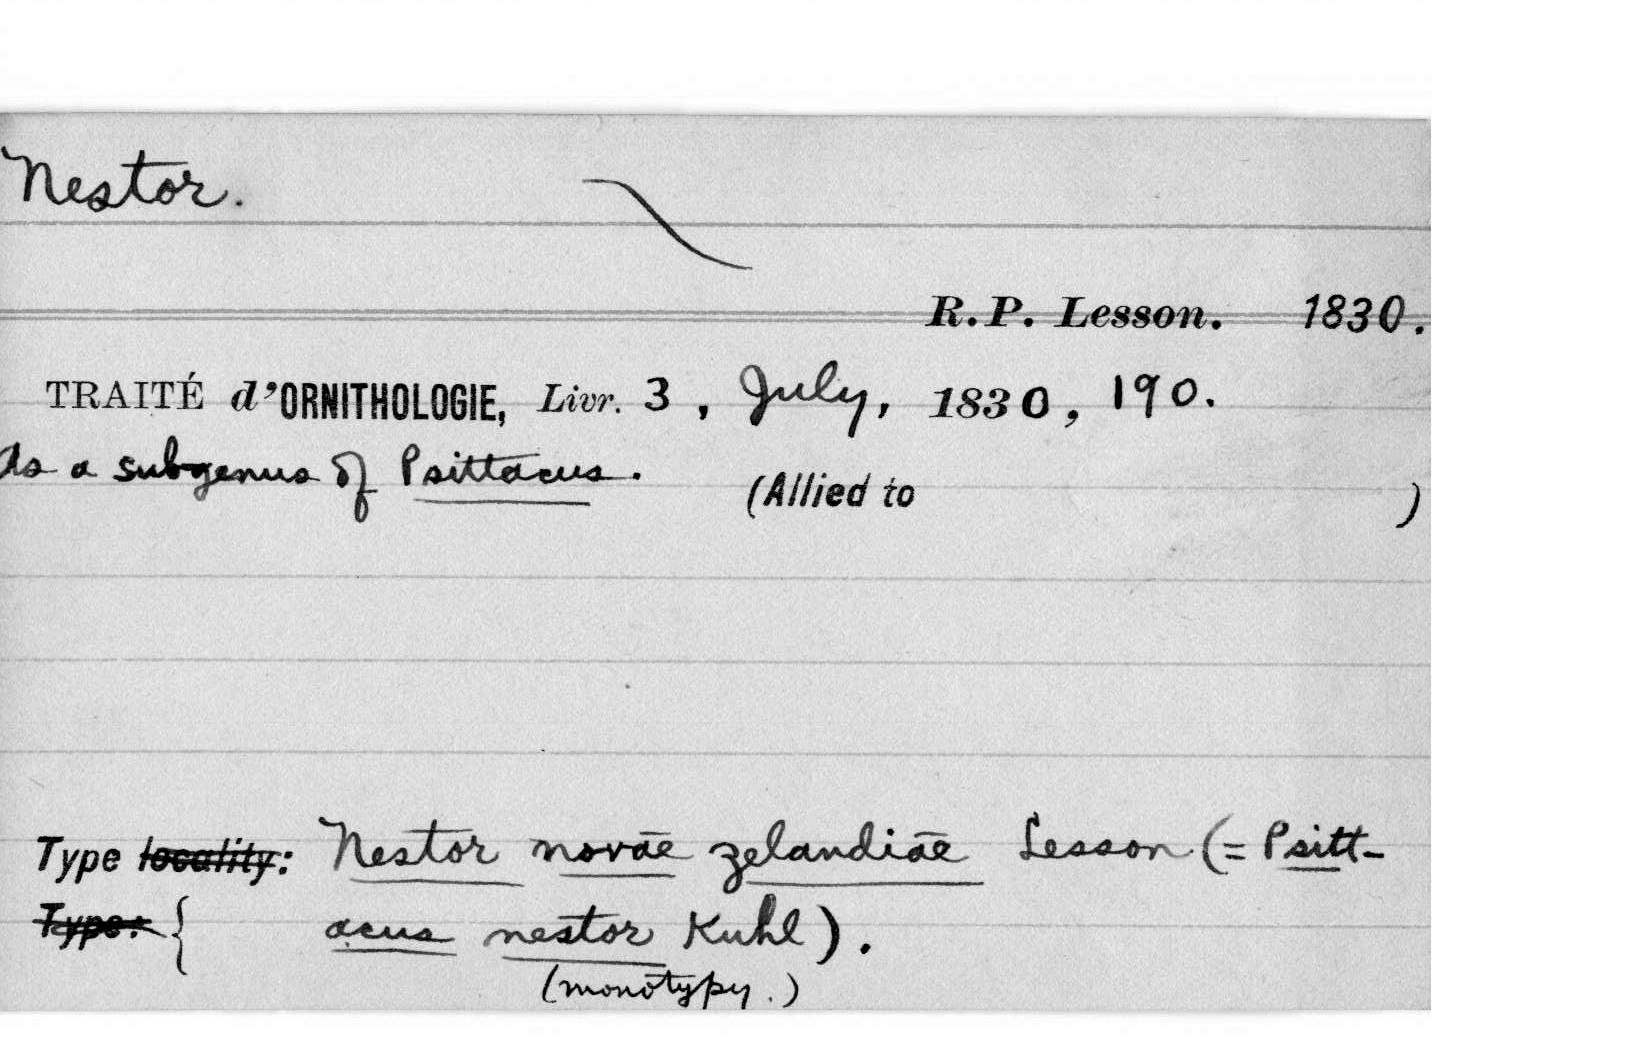 Nestor.
R.P. Lesson. 1830.
TRAITÉ d'ORNITHOLOGIE, Livr. 3, July, 1830, 190.
As a subgenus of Psittacus.
(Allied to )
Type locality: Nestor novae zelandiae Lesson (= Psitt-
Type: { acus nestor Kuhl).
(monotypy.)